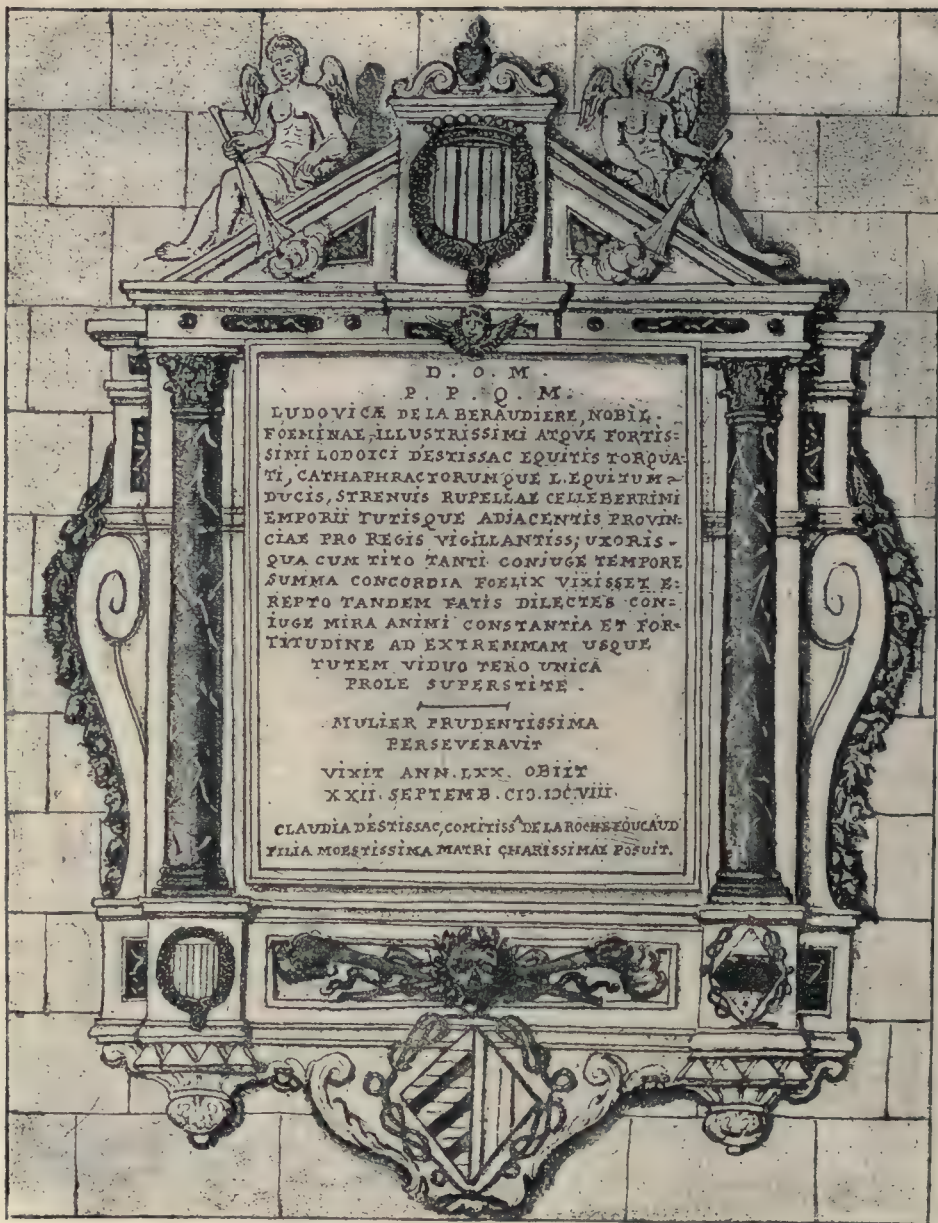 D. O. M.
P. P. Q. M.
LUDOVICÆ DE LA BERAUDIERE, NOBIL.
FOEMINAE, ILLUSTRISSIMI ATQVE FORTIS=
SIMI LODOICI D'ESTISSAC EQUITIS TORQUA-
TI, CATHAPHRACTORUMQUE L. EQUITUM=
DUCIS, STRENUIS RUPELLAE CELLEBERRIMI
EMPORII TUTISQUE ADJACENTIS PROVIN=
CIAE PRO REGIS VIGILLANTISS; UXORIS -
QUA CUM TITO TANTI CONJUGE TEMPORE
SUMMA CONCORDIA FOELIX VIXISSET E=
REPTO TANDEM FATIS DILECTES CON=
IUGE MIRA ANIMI CONSTANTIA ET FOR=
TITUDINE AD EXTREMMAM USQUE
TUTEM VIDUO TERO UNICA
PROLE SUPERSTITE.
MULIER PRUDENTISSIMA
PERSEVERAVIT
VIXIT ANN. LXX. OBIIT
XXII. SEPTEMB. CIƆ.IƆC.VIII.
CLAUDIA D'ESTISSAC, COMITISSA DE LA ROCHEFOUCAUD
FILIA MOESTISSIMA MATRI CHARISSIMAE POSUIT.